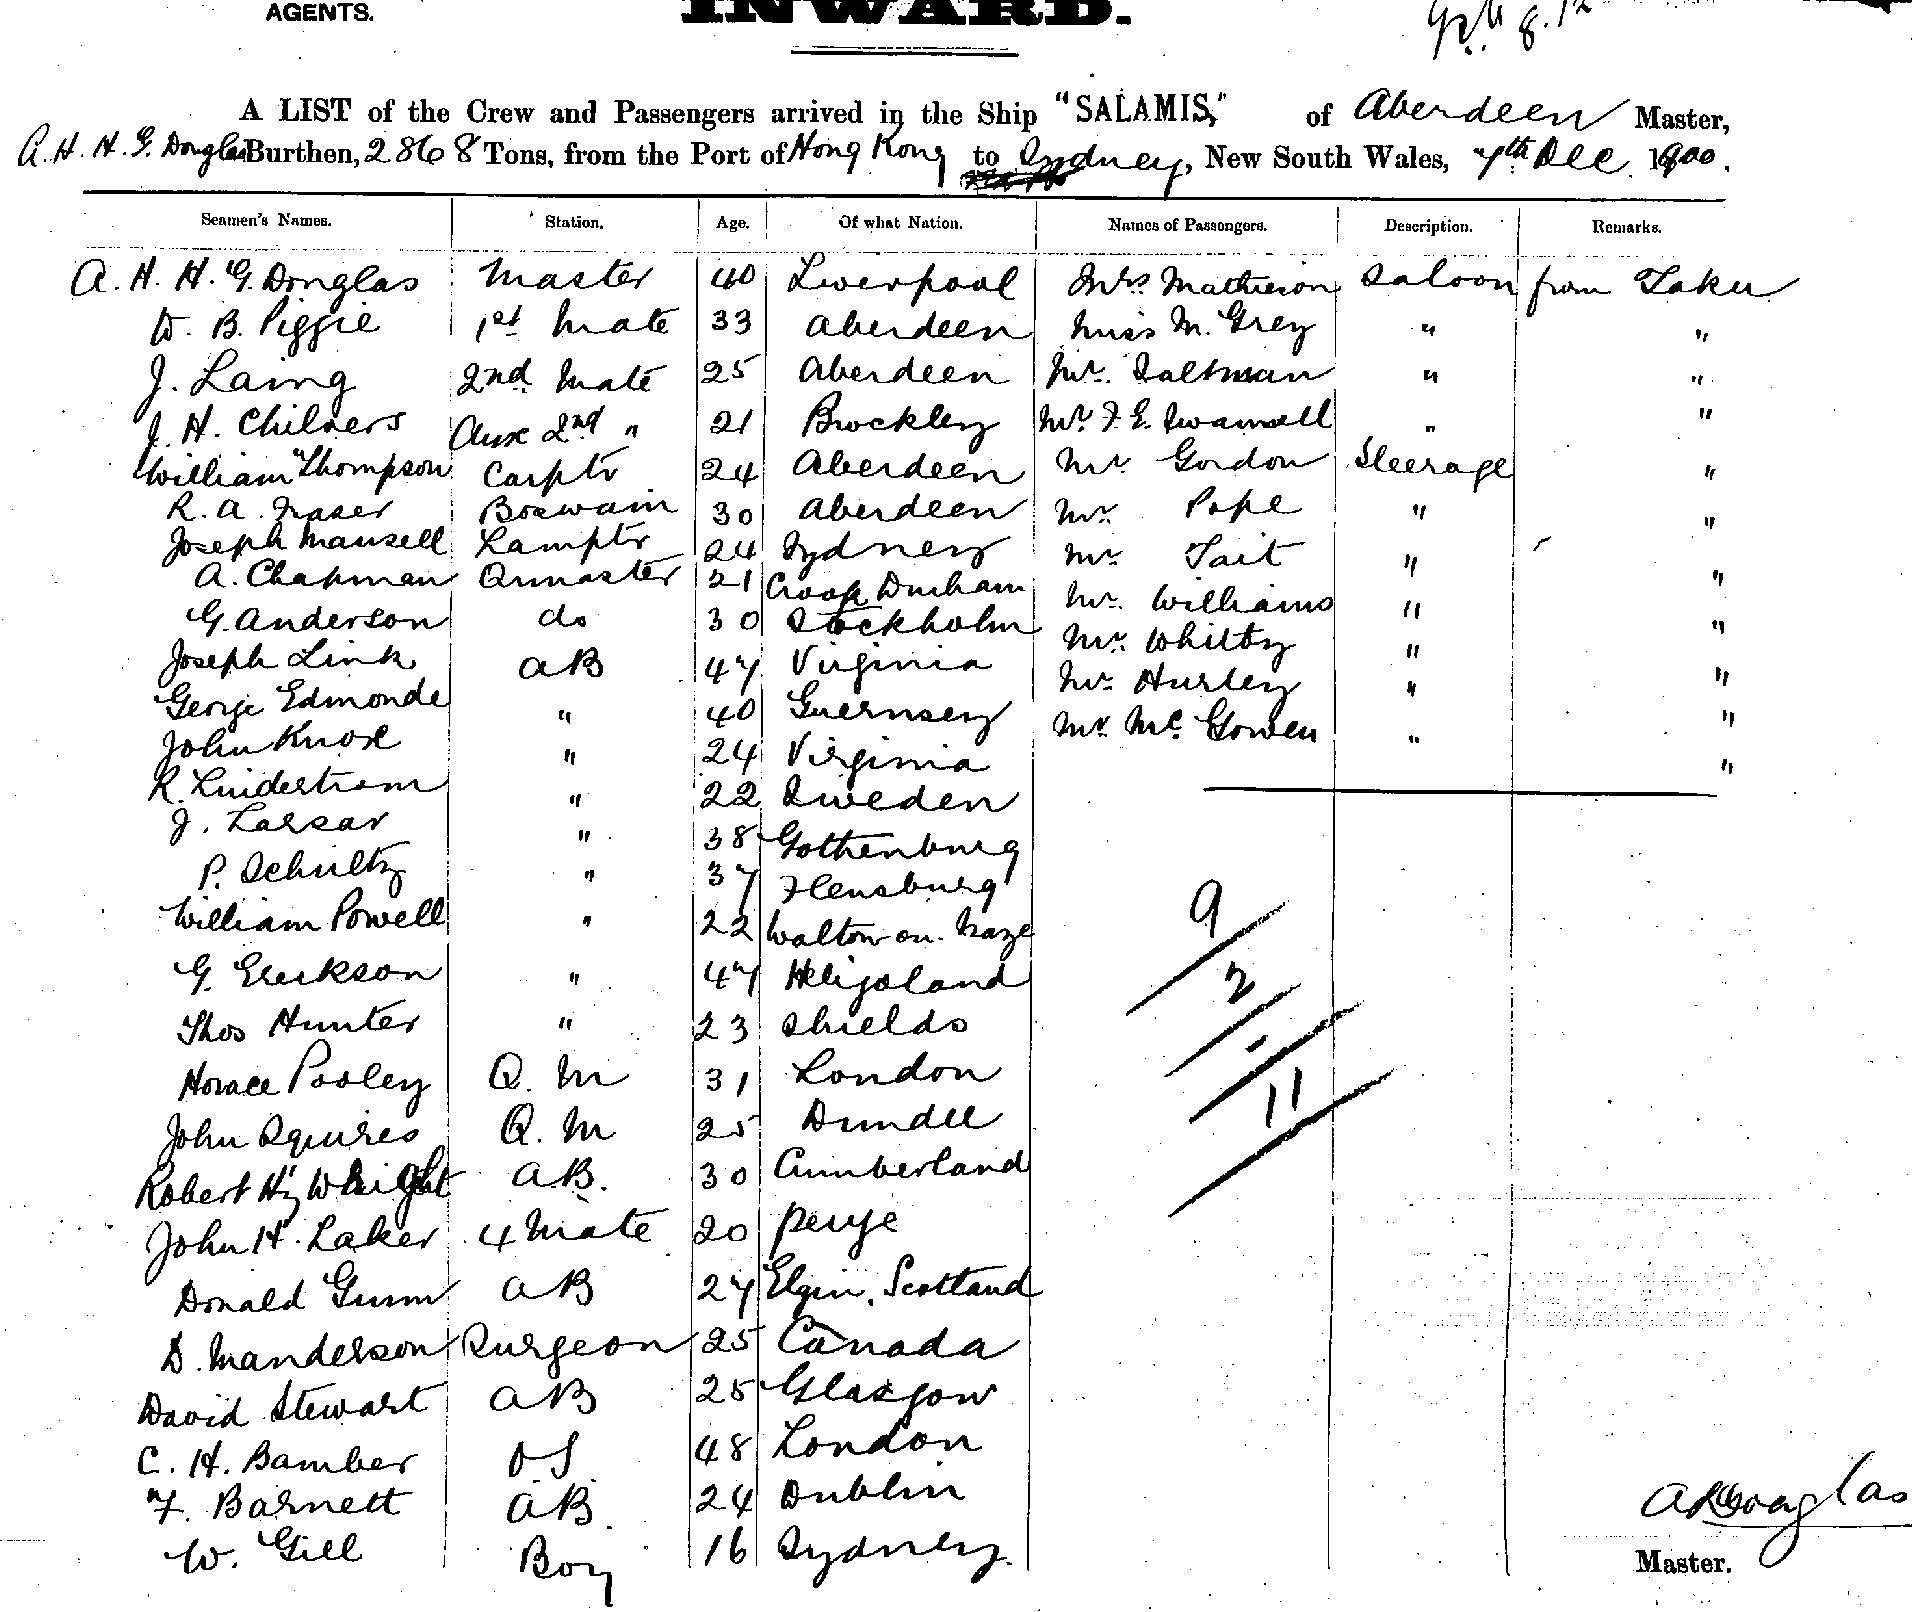 AGENTS.
INWARD.
A LIST of the Crew and Passengers arrived in the Ship "SALAMIS," of Aberdeen Master,
A. H. H. G. Douglas Burthen, 2868 Tons, from the Port of Hong Kong to Sydney, New South Wales, 7th Dec. 1900.
Seamen's Names. Station. Age. Of what Nation. Names of Passengers. Description. Remarks.
A. H. H. G. Douglas Master 40 Liverpool Mrs Mathieson Saloon from Taku
W. B. Piggie 1st Mate 33 Aberdeen Miss M. Grey " "
J. Laing 2nd Mate 25 Aberdeen Mr. Saltman " "
J. H. Chilvers Aux 2nd " 21 Brockley Mr. F. E. Swamsell " "
William Thompson Carptr 24 Aberdeen Mr Gordon Steerage "
R. A. Fraser Boswain 30 Aberdeen Mr Pope " "
Joseph Mansell Lamptr 24 Sydney Mr Tait " "
A. Chapman Qrmaster 21 Crook Durham Mr. Williams " "
G. Anderson do 30 Stockholm Mr. Whitby " "
Joseph Link AB 47 Virginia Mr Hurley " "
George Edmonde " 40 Guernsey Mr. McGowen " "
John Knox " 24 Virginia
R. Linderstrom " 22 Sweden
J. Larsar " 38 Gothenburg
P. Schultz " 37 Flensburg
William Powell " 22 Walton-on-Naze
G. Erickson " 47 Heligoland
Thos Hunter " 23 Shields
Horace Pooley Q. M 31 London
John Squires Q. M 25 Dundee
Robert Hy Wright AB. 30 Cumberland
John H. Laker 4 Mate 20 Penge
Donald Gunn AB 27 Elgin, Scotland
D. Manderson Surgeon 25 Canada
David Stewart AB 25 Glasgow
C. H. Bamber OS 48 London
F. Barnett AB. 24 Dublin
W. Gill Boy 16 Sydney.
9
2
11
Douglas
Master.